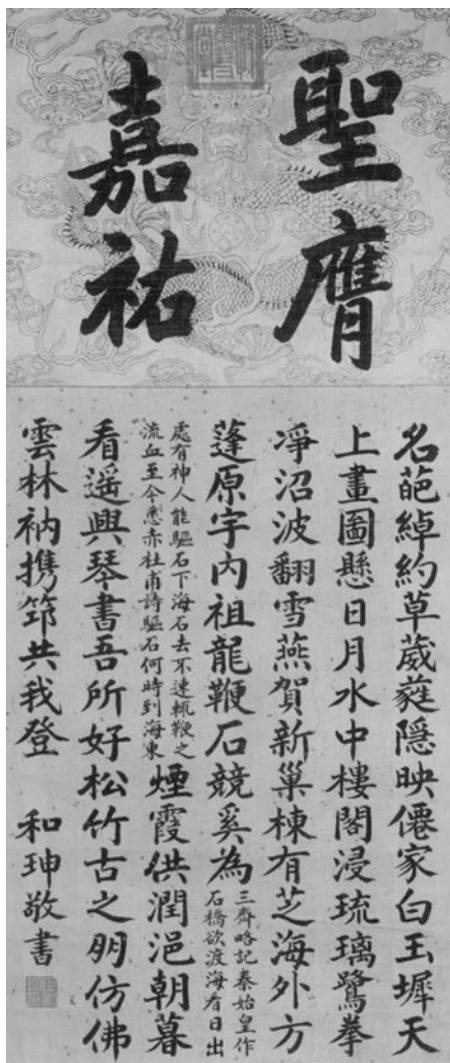 聖膺
嘉祐
名葩綽約草葳蕤隱映僊家白玉墀天
上畫圖懸日月水中樓閣浸琉璃鷺拳
凈沼波翻雪燕賀新巢棟有芝海外方
蓬原宇內祖龍鞭石競奚為
三齊略記秦始皇作
石橋欲渡海看日出
處有神人能驅石下海石去不速輒鞭之
流血至今悉赤杜甫詩驅石何時到海東
煙霞供潤浥朝暮
看遥興琴書吾所好松竹古之朋仿佛
雲林衲携笻共我登 和珅敬書